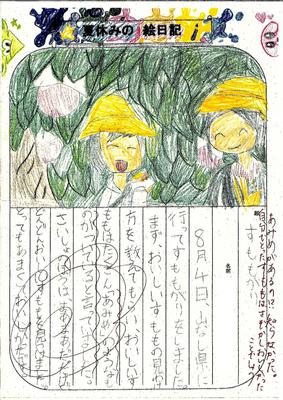 夏休みの 絵日記
あみめがあるのは知らなかった。
自分でとったすももはさぞかしおいしかった
ことでしょう
題
すももがり
名前
8月4日、山なし県に
行ってすももがりをしました。
まずおいしいすももの見分け
方を教えてもらい、おいしいす
ももはたくさんあみめのような
のがついてると言っていました。
さいしょは
どんどんおいしいすももを見つけました。
とってもあまくておいしかったです。